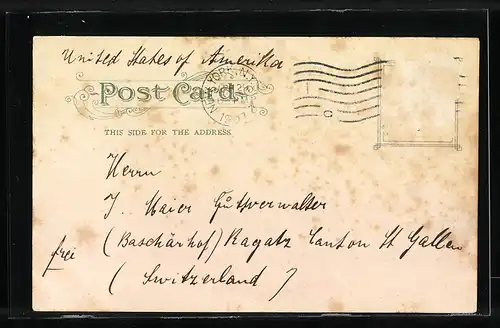 United States of Amerika
Post Card
NEW YORK, N.Y.
THIS SIDE FOR THE ADDRESS.
Herrn
J. Maier Gutsverwalter
(Baschärhof) Ragatz Canton St Gallen
frei
(Switzerland)